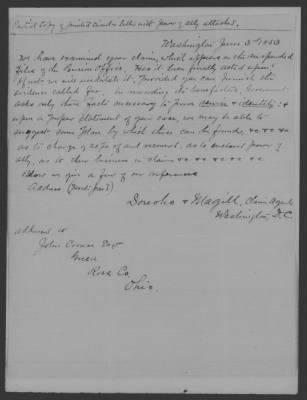 Partial Copy of printed Circular Letter with power of Atty attached.
Washington June 3 1853
We have examined your claim, which appears on the suspended
files of the Pension Office. Has it been finally acted upon?
If not we will undertake it. Provided you can furnish the
evidence called for, in rewarding its benefactors, Government
asks only those facts necessary to prove Service & identity: &
upon a proper Statement of your case, we may be able to
suggest some plan by which these can be found; &c &c &c
as to charge of 20 pr ct and interest, as to enclosed power of
Atty, as to their business in claims &c &c &c &c
below we give a few of our references
Address (Postpaid)
Donoho & Magill, Claim Agents
Washington, D.C.
address to
John Esqr
Green
Ross Co.
Ohio.